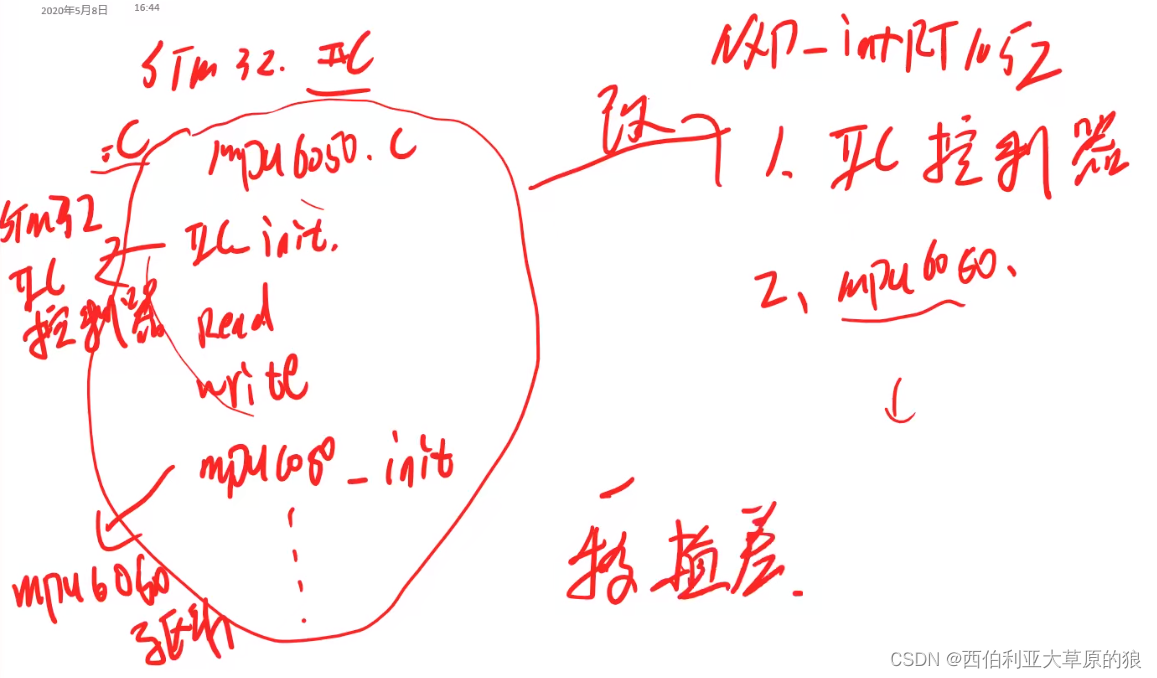 2020年5月8日 16:44
STm32. IIC
NXP_imxRT1052
.C
mpu6050.C
改
1. IIC 控制器
STm32
IIC
控制器
IIC init.
2、mpu6050、
Read
write
mpu6050_init
移植差.
mpu6050
驱动
CSDN @西伯利亚大草原的狼